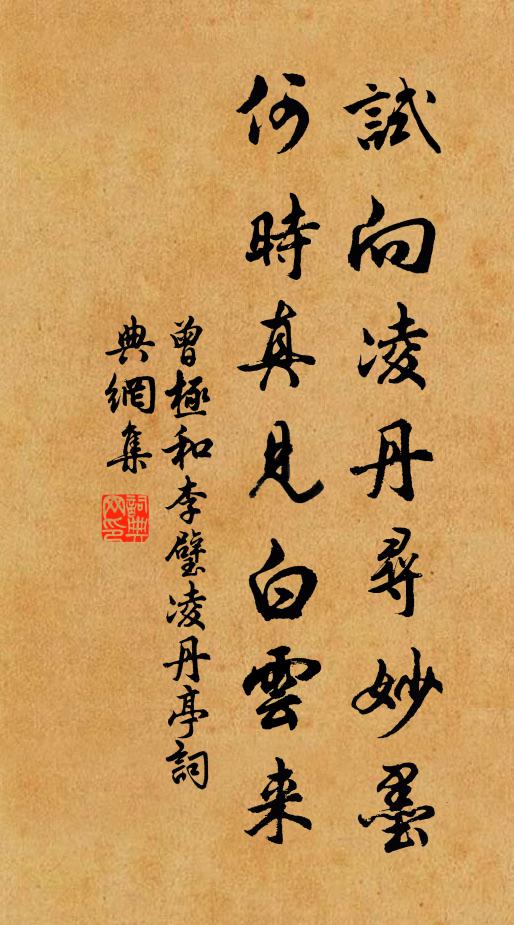 試向凌丹尋妙墨
何時真見白雲来
曾極和李璧凌丹亭詞
典網集
詞典
网印